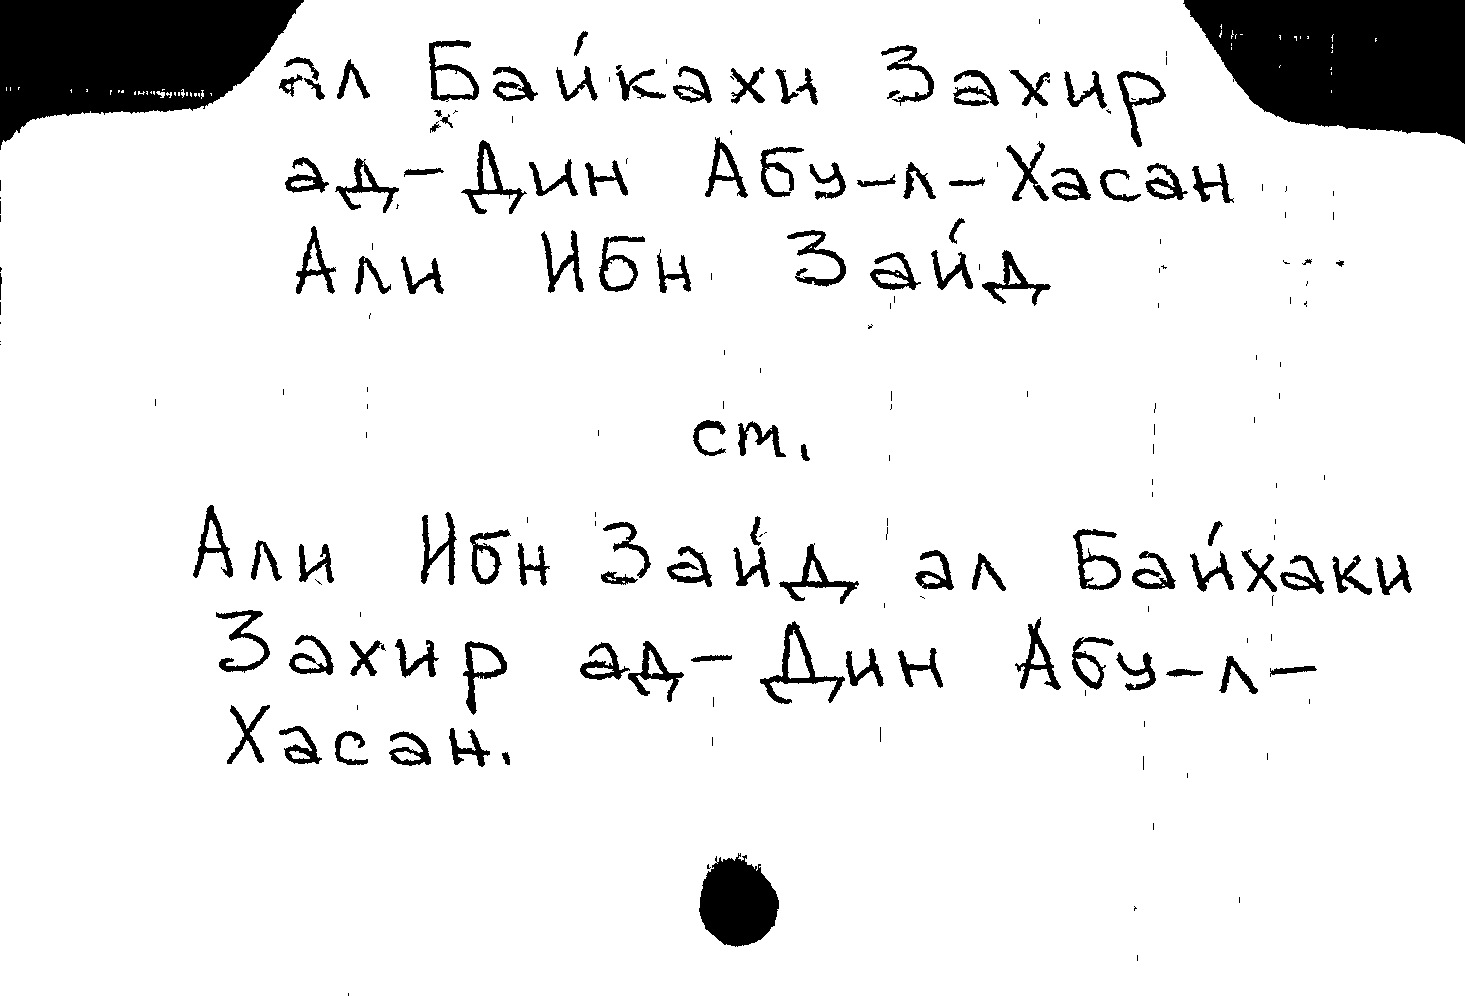 ал Байкахи Захир
ад-Дин Абу-л-Хасан
Али Ибн Зайд
см.
Али Ибн Зайд ал Байхаки
Захир ад-Дин Абу-л-
Хасан.